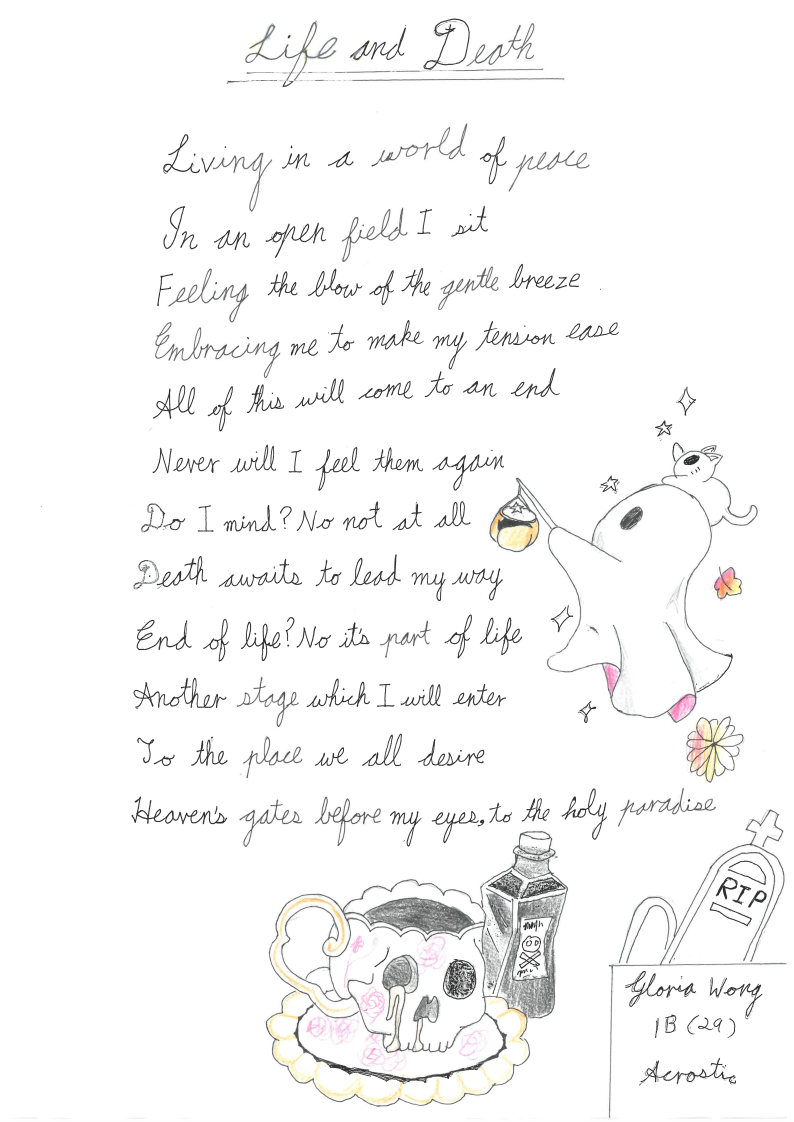 Life and Death
Living in a world of peace
In an open field I sit
Feeling the blow of the gentle breeze
Embracing me to make my tension ease
All of this will come to an end
Never will I feel them again
Do I mind? No not at all
Death awaits to lead my way
End of life? No it's part of life
Another stage which I will enter
To the place we all desire
Heaven's gates before my eyes, to the holy paradise
RIP
Gloria Wong
1B (29)
Acrostic